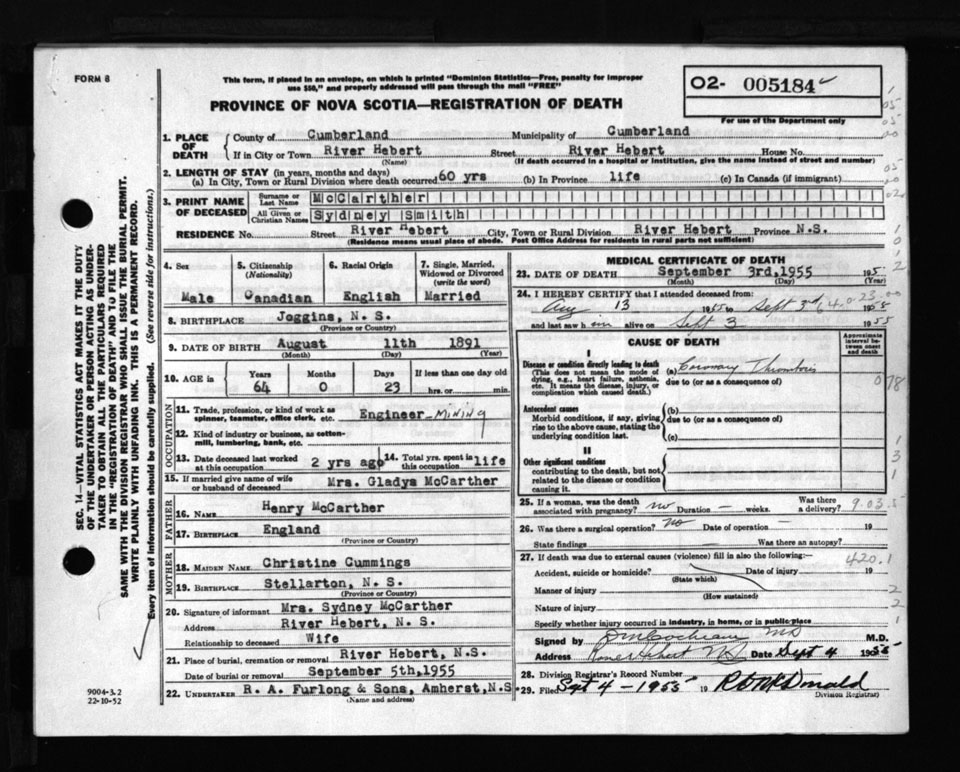 FORM 8
This form, if placed in an envelope, on which is printed "Dominion Statistics—Free, penalty for improper
use $50," and properly addressed will pass through the mail "FREE"
O2- 005184
For use of the Department only
PROVINCE OF NOVA SCOTIA—REGISTRATION OF DEATH
SEC. 14—VITAL STATISTICS ACT MAKES IT THE DUTY
OF THE UNDERTAKER OR PERSON ACTING AS UNDER-
TAKER TO OBTAIN ALL THE PARTICULARS REQUIRED
IN THE "REGISTRATION OF DEATH" AND TO FILE THE
SAME WITH THE DIVISION REGISTRAR WHO SHALL ISSUE THE BURIAL PERMIT.
WRITE PLAINLY WITH UNFADING INK. THIS IS A PERMANENT RECORD.
Every item of information should be carefully supplied. (See reverse side for instructions.)
1. PLACE OF DEATH County of Cumberland Municipality of Cumberland
If in City or Town River Hebert Street River Hebert House No.
(Name) (If death occurred in a hospital or institution, give the name instead of street and number)
2. LENGTH OF STAY (in years, months and days)
(a) In City, Town or Rural Division where death occurred 60 yrs (b) In Province life (c) In Canada (if immigrant)
3. PRINT NAME OF DECEASED Surname or Last Name McCarther
All Given or Christian Names Sydney Smith
RESIDENCE No. Street River Hebert City, Town or Rural Division River Hebert Province N.S.
(Residence means usual place of abode. Post Office Address for residents in rural parts not sufficient)
4. Sex 5. Citizenship (Nationality) 6. Racial Origin 7. Single, Married, Widowed or Divorced (write the word)
Male Canadian English Married
8. BIRTHPLACE Joggins, N. S.
(Province or Country)
9. DATE OF BIRTH August 11th 1891
(Month) (Day) (Year)
10. AGE in Years Months Days If less than one day old
64 0 23 hrs. or min.
OCCUPATION
11. Trade, profession, or kind of work as spinner, teamster, office clerk, etc. Engineer - MINING
12. Kind of industry or business, as cotton-mill, lumbering, bank, etc.
13. Date deceased last worked at this occupation 2 yrs ago 14. Total yrs. spent in this occupation life
15. If married give name of wife or husband of deceased Mrs. Gladys McCarther
FATHER
16. NAME Henry McCarther
17. BIRTHPLACE England
(Province or Country)
MOTHER
18. MAIDEN NAME Christine Cummings
19. BIRTHPLACE Stellarton, N. S.
(Province or Country)
20. Signature of informant Mrs. Sydney McCarther
Address River Hebert, N. S.
Relationship to deceased Wife
21. Place of burial, cremation or removal River Hebert, N.S.
Date of burial or removal September 5th,1955
22. UNDERTAKER R. A. Furlong & Sons, Amherst,N.S
(Name and address)
9004-3.2
22-10-52
MEDICAL CERTIFICATE OF DEATH
23. DATE OF DEATH September 3rd,1955 195
(Month) (Day) (Year)
24. I HEREBY CERTIFY that I attended deceased from:
Aug 13 1955 to Sept 3 1955
and last saw him alive on Sept 3 1955
CAUSE OF DEATH
Approximate interval between onset and death
I
Disease or condition directly leading to death
(This does not mean the mode of dying, e.g., heart failure, asthenia, etc. It means the disease, injury, or complication which caused death.)
(a) Coronary Thrombosis
due to (or as a consequence of) 078
Antecedent causes
Morbid conditions, if any, giving rise to the above cause, stating the underlying condition last.
(b)
due to (or as a consequence of)
(c)
II
Other significant conditions
contributing to the death, but not related to the disease or condition causing it.
25. If a woman, was the death associated with pregnancy? no Duration — weeks. Was there a delivery?
26. Was there a surgical operation? no Date of operation — 19
State findings — Was there an autopsy?
27. If death was due to external causes (violence) fill in also the following:— 420.1
Accident, suicide or homicide? Date of injury 19
(State which)
Manner of injury
(How sustained)
Nature of injury
Specify whether injury occurred in industry, in home, or in public place
Signed by D M Cochrane MD M.D.
Address River Hebert NS Date Sept 4 1955
28. Division Registrar's Record Number
29. Filed Sept 4 - 1955 19
Division Registrar)